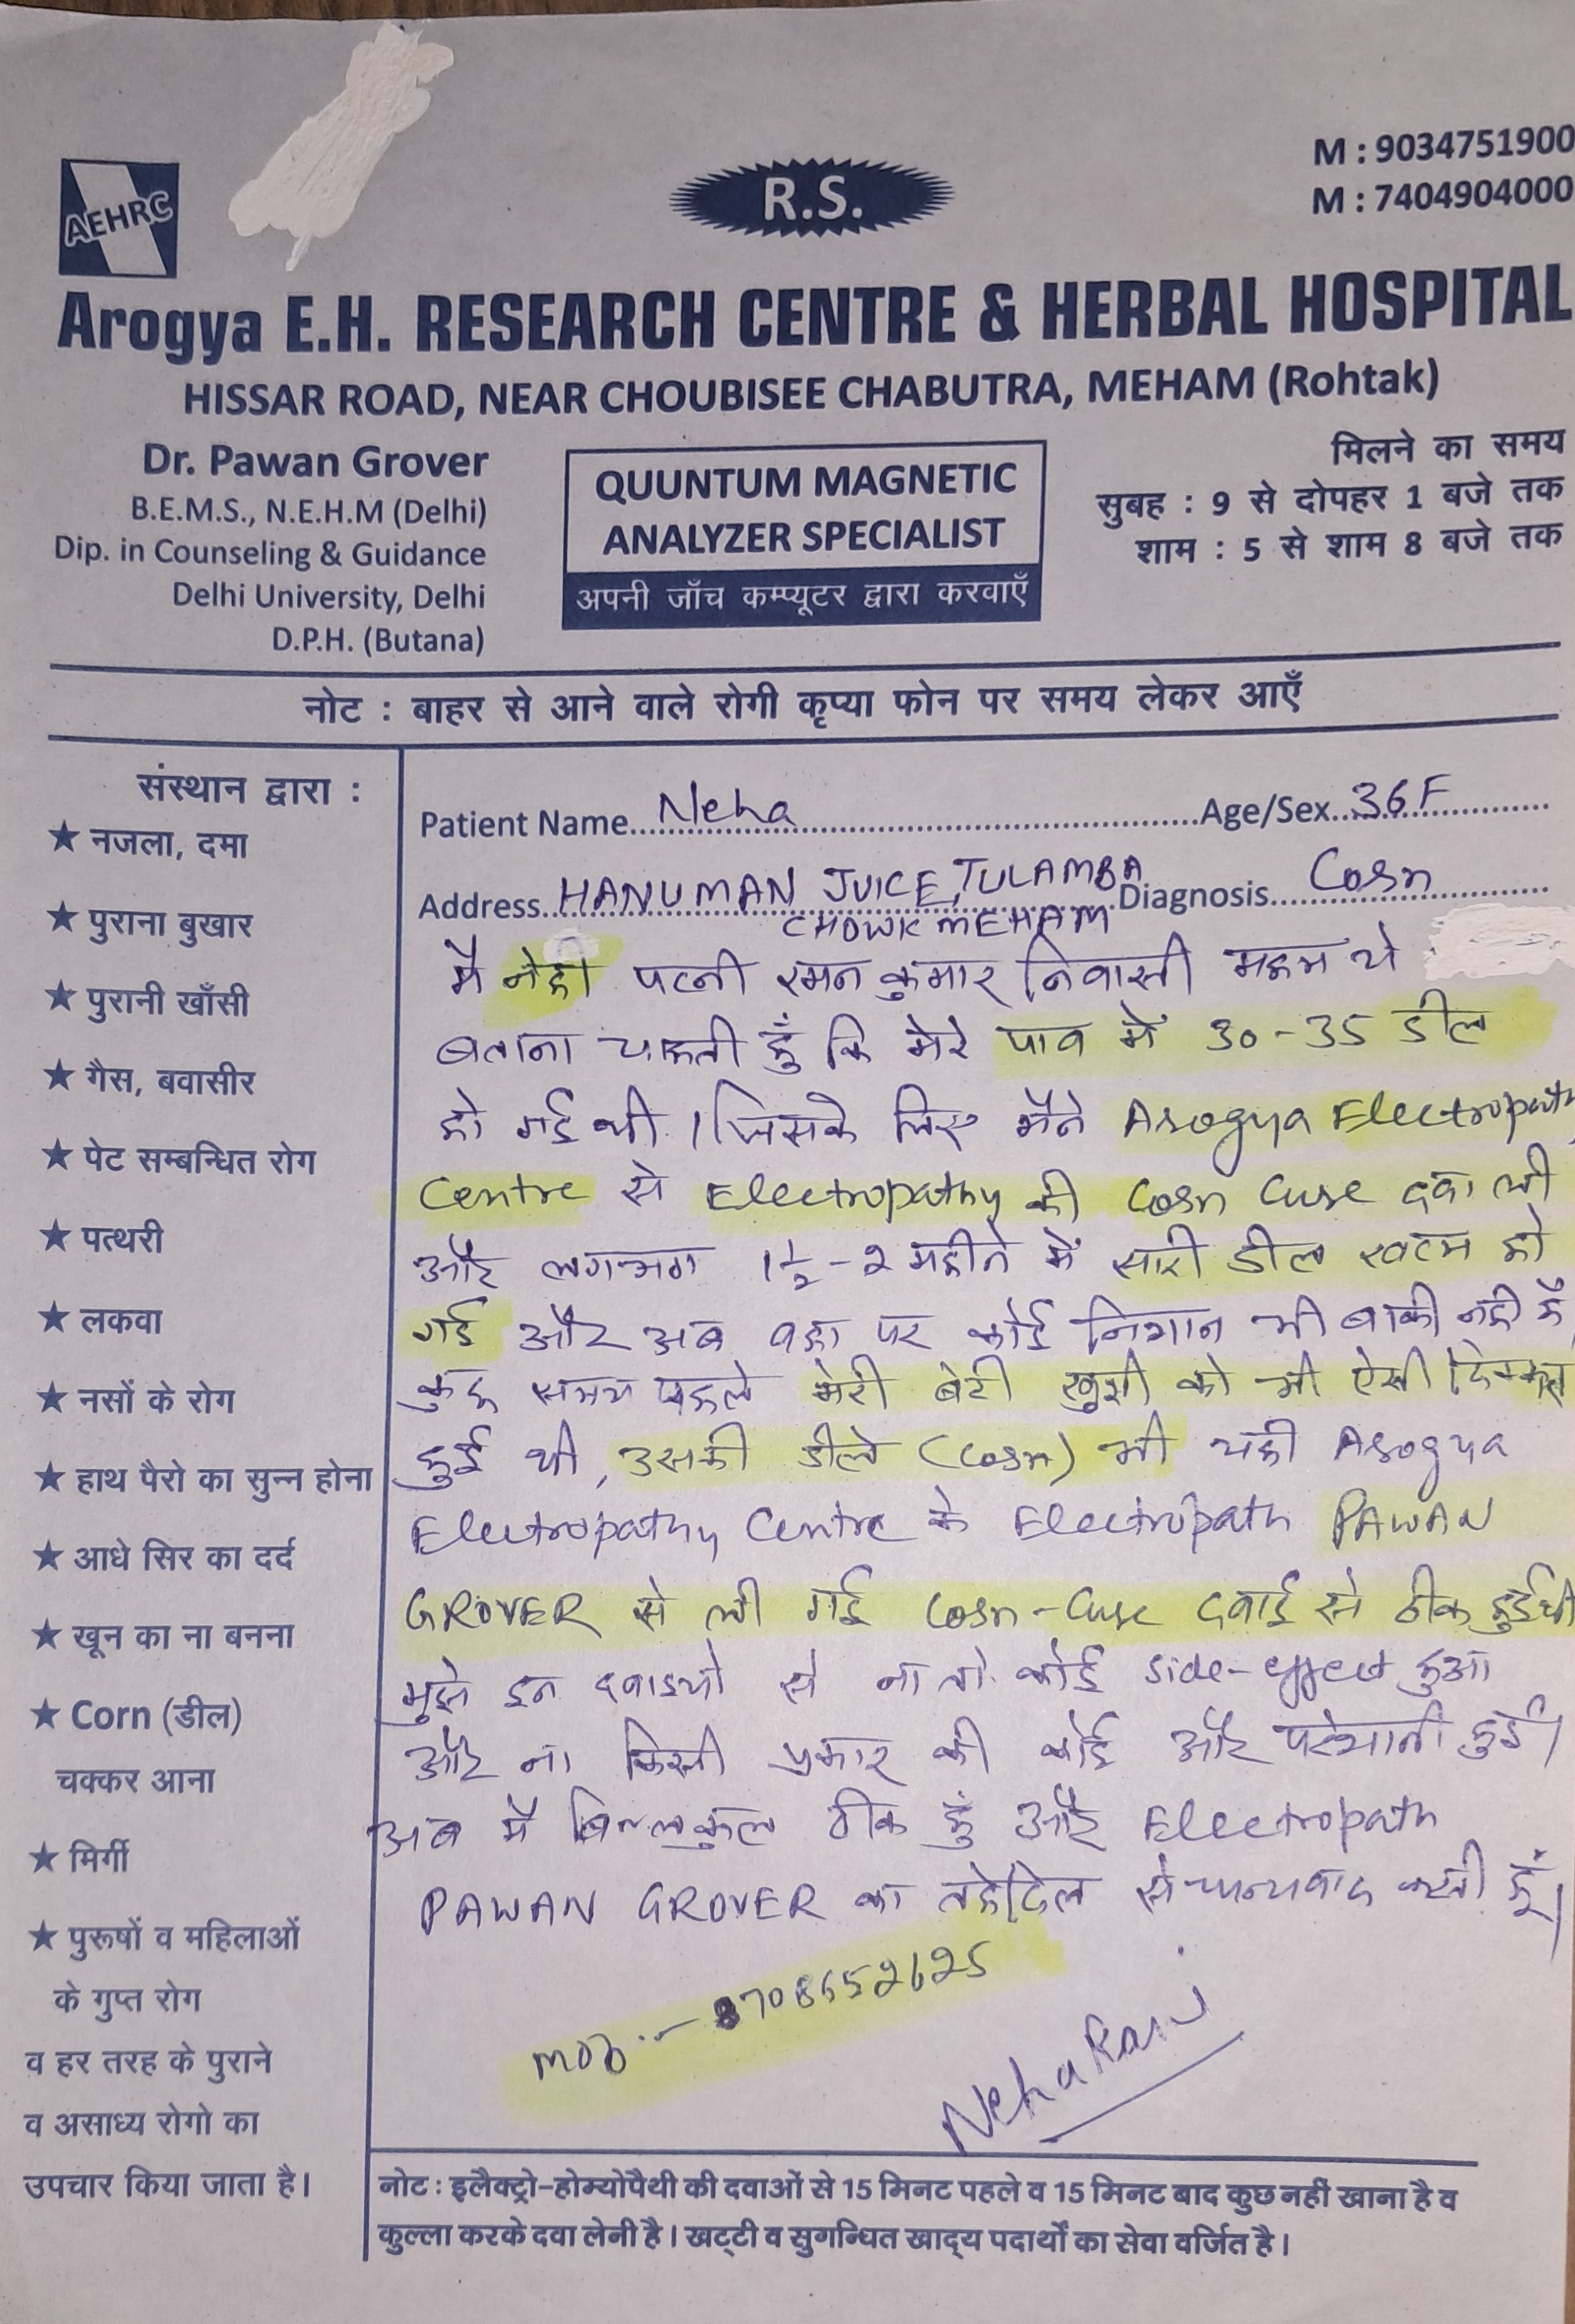 AEHRC
R.S.
M : 9034751900
M : 7404904000
Arogya E.H. RESEARCH CENTRE & HERBAL HOSPITAL
HISSAR ROAD, NEAR CHOUBISEE CHABUTRA, MEHAM (Rohtak)
Dr. Pawan Grover
B.E.M.S., N.E.H.M (Delhi)
Dip. in Counseling & Guidance
Delhi University, Delhi
D.P.H. (Butana)
QUUNTUM MAGNETIC
ANALYZER SPECIALIST
अपनी जाँच कम्प्यूटर द्वारा करवाएँ
मिलने का समय
सुबह : 9 से दोपहर 1 बजे तक
शाम : 5 से शाम 8 बजे तक
नोट : बाहर से आने वाले रोगी कृप्या फोन पर समय लेकर आएँ
संस्थान द्वारा :
★ नजला, दमा
★ पुराना बुखार
★ पुरानी खाँसी
★ गैस, बवासीर
★ पेट सम्बन्धित रोग
★ पत्थरी
★ लकवा
★ नसों के रोग
★ हाथ पैरो का सुन्न होना
★ आधे सिर का दर्द
★ खून का ना बनना
★ Corn (डील)
चक्कर आना
★ मिर्गी
★ पुरूषों व महिलाओं
के गुप्त रोग
व हर तरह के पुराने
व असाध्य रोगो का
उपचार किया जाता है।
Patient Name Neha Age/Sex 36 F
Address HANUMAN JUICE, TULAMBA Diagnosis Corn
CHOWK MEHAM
मै नेहा पत्नी रमन कुमार निवासी महम ये
बताना चाहती हुँ कि मेरे पाव में 30-35 डील
हो गई थी । जिसके लिए मैने Arogya Electropathy
Centre से Electropathy की Corn Cure दवा ली
और लगभग 1½-2 महीने में सारी डील खत्म हो
गई और अब वहा पर कोई निशान भी बाकी नही है
कुछ समय पहले मेरी बेटी खुशी को भी ऐसी दिक्कत
हुई थी, उसकी डीले (Corn) भी यही Arogya
Electropathy Centre के Electropath PAWAN
GROVER से ली गई Corn-Cure दवाई से ठीक हुई थी
मुझे इन दवाइयो से ना तो कोई side-effect हुआ
और ना किसी प्रकार की कोई और परेशानी हुई।
अब मै बिल्लकुल ठीक हुं और Electropath
PAWAN GROVER का तहेदिल से धन्यवाद करती हूँ।
mob :- 8708652625
Neha Rani
नोट : इलैक्ट्रो-होम्योपैथी की दवाओं से 15 मिनट पहले व 15 मिनट बाद कुछ नहीं खाना है व
कुल्ला करके दवा लेनी है। खट्टी व सुगन्धित खाद्य पदार्थों का सेवा वर्जित है।